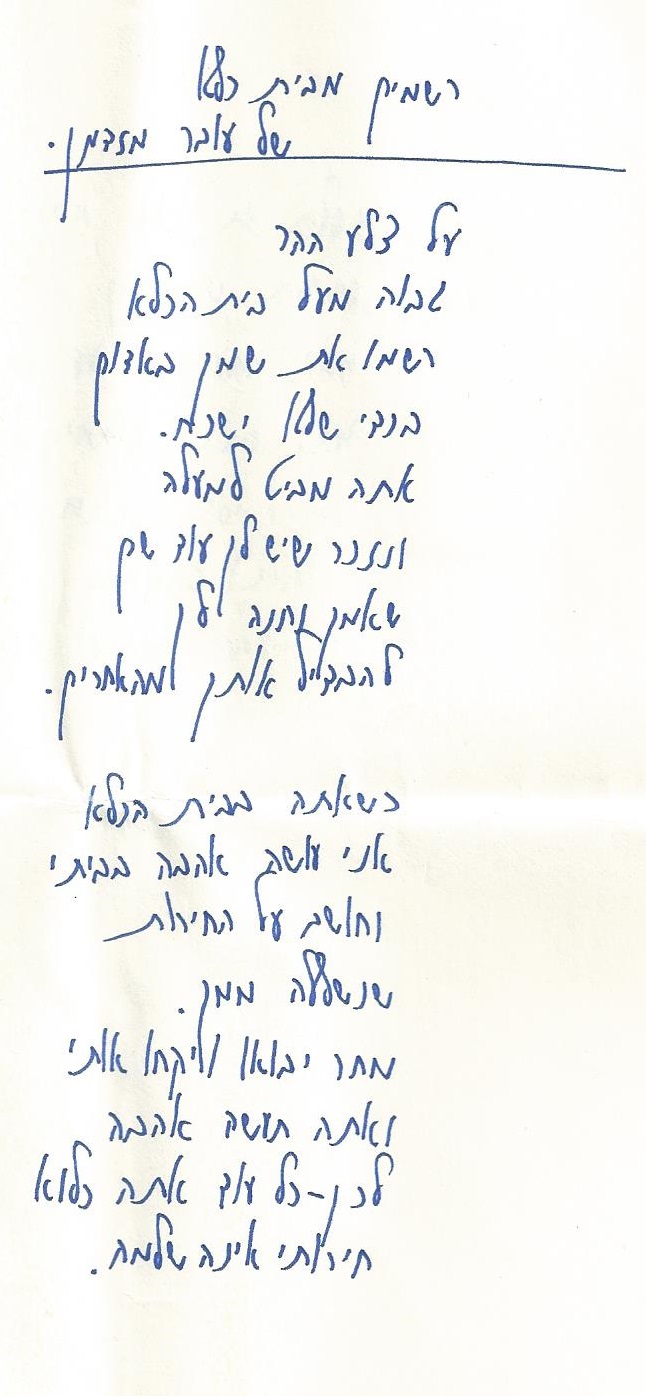 רשמים מבית כלא
של עובר מזדמן.
על צלע ההר
גבוה מעל בית הכלא
רשמו את שמך באדום
בנבי שלא ישכח.
אתה מביט למעלה
ונזכר שיש לך עוד שם
שאמך נתנה לך
להבדיל אותך מהאחרים.
כשאתה בבית הכלא
אני עושה אהבה בביתי
וחושב על החירות
שנשללה ממך.
מחר יבואו ויקחו אותי
ואתה תעשה אהבה
לכן - כל עוד אתה כלוא
חירותי אינה שלמה.